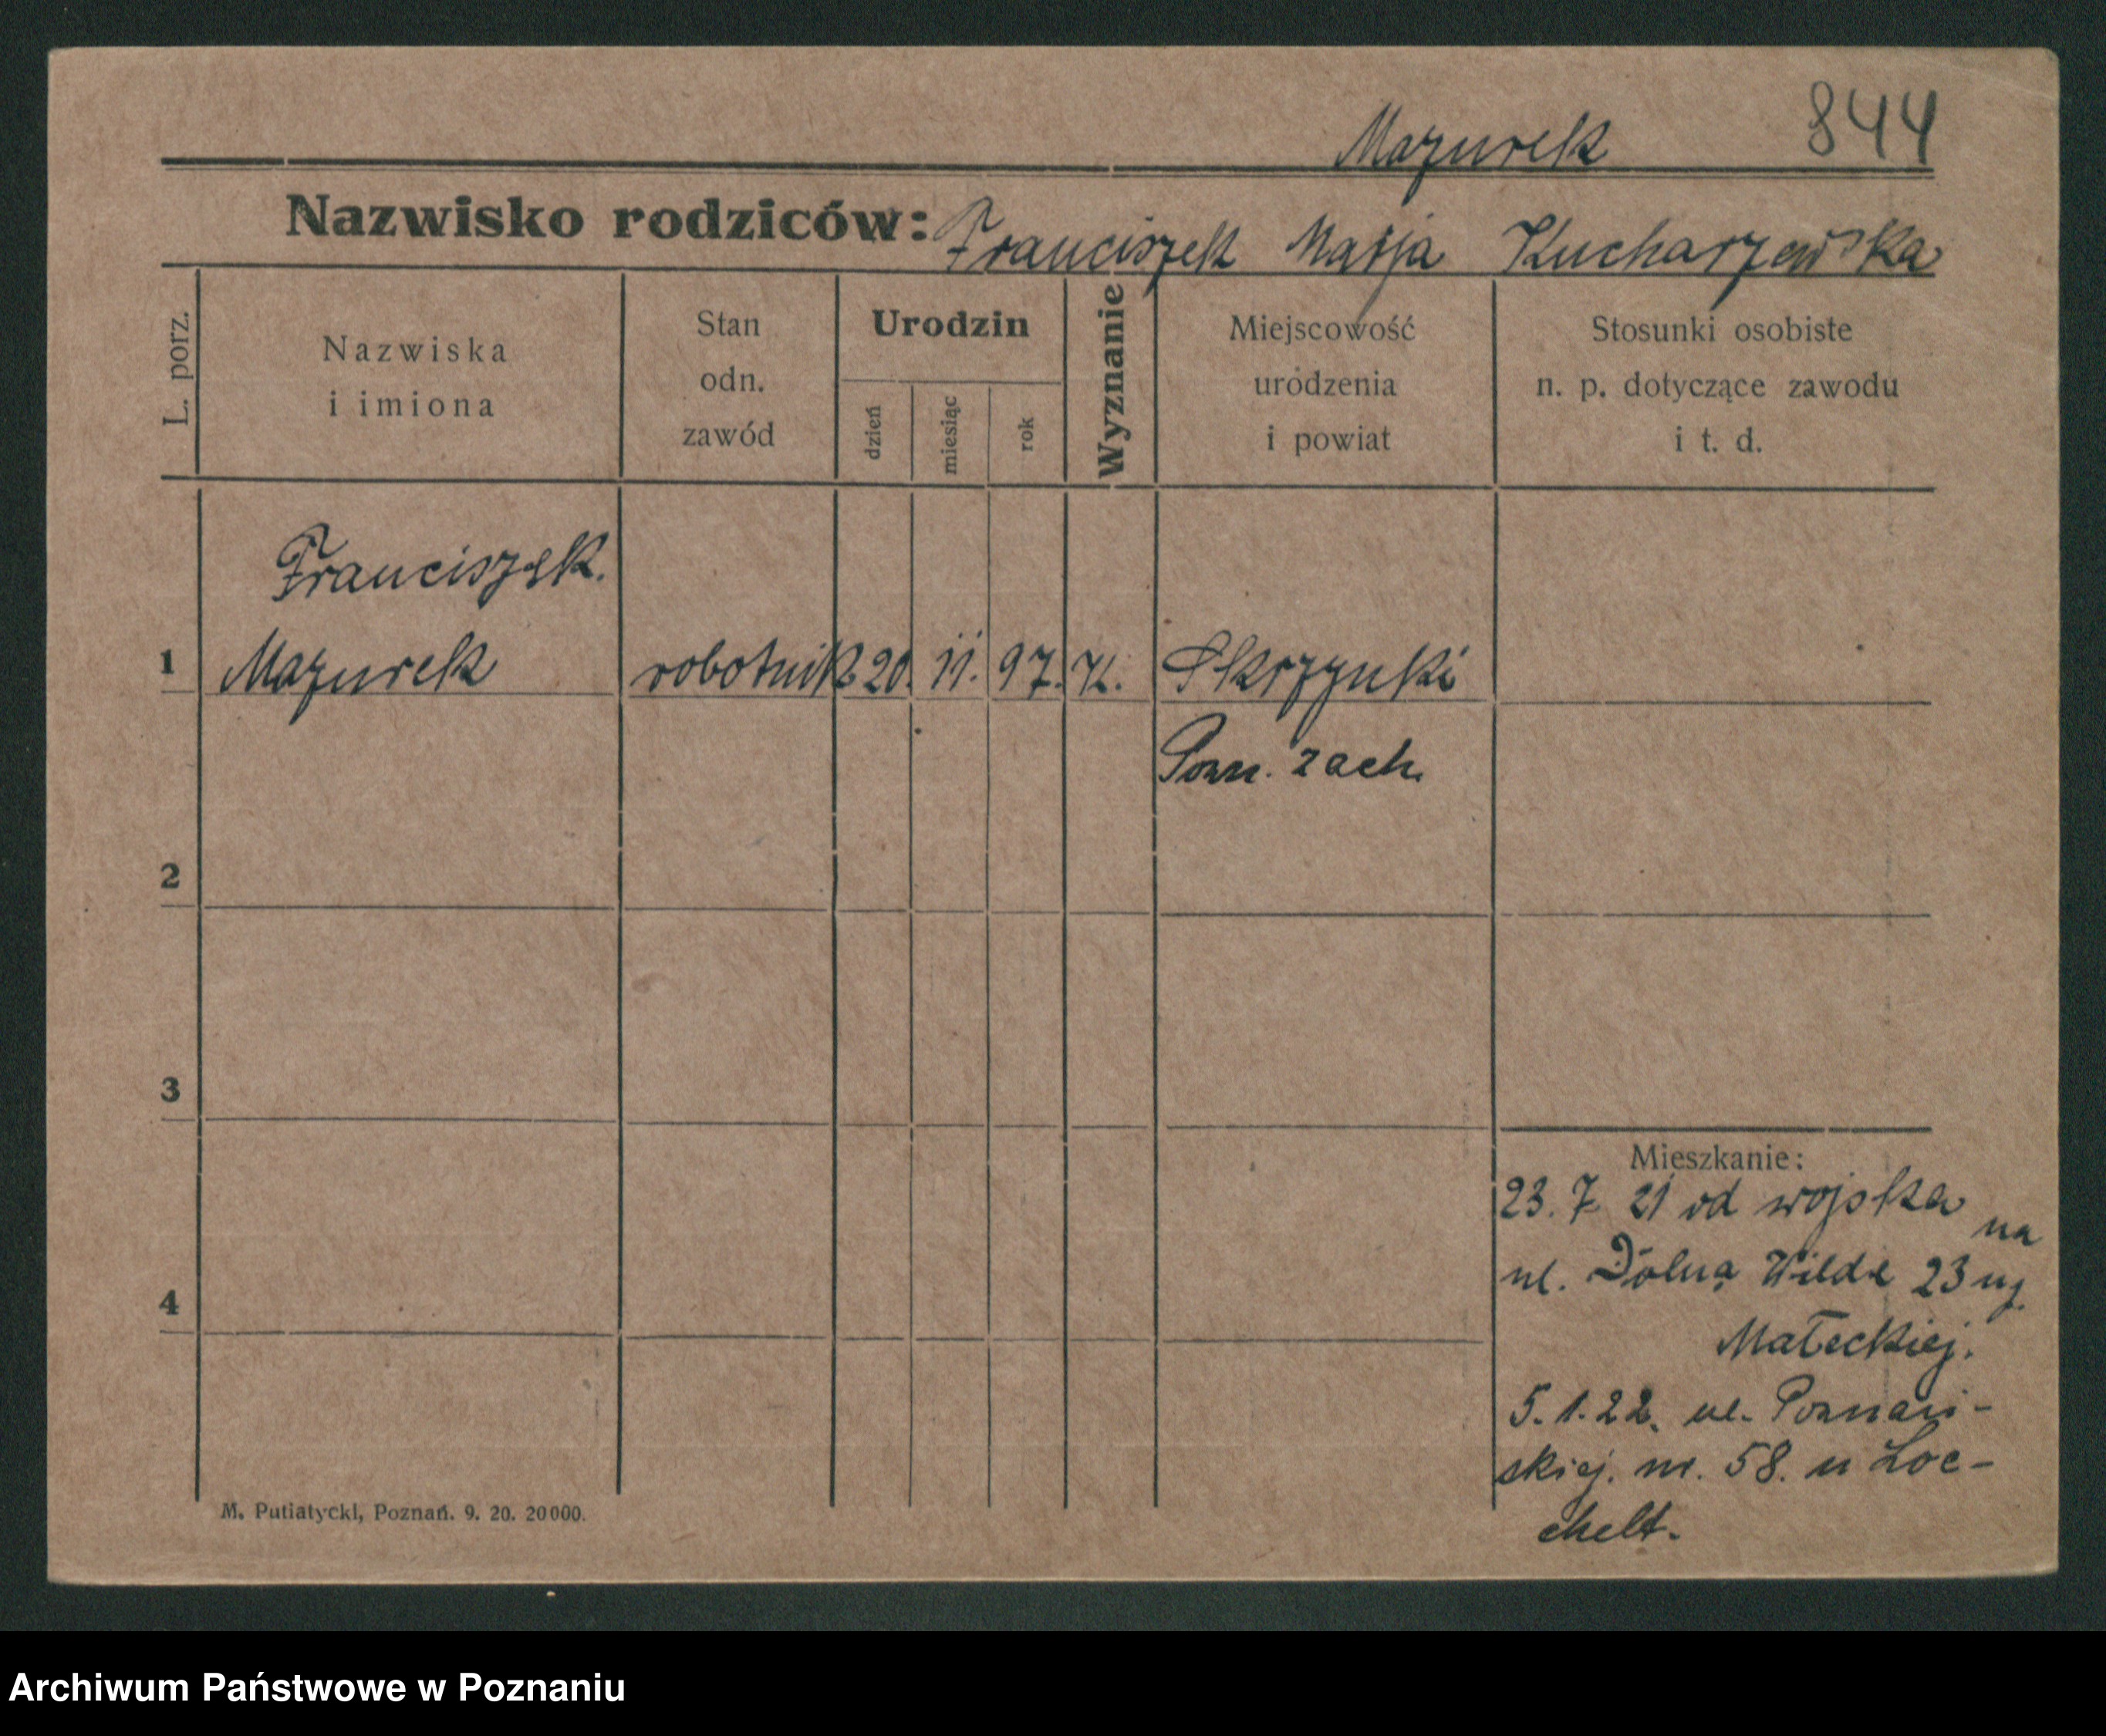 844
Mazurek
Nazwisko rodziców: Franciszek Marja Kucharzewska
L. porz.
Nazwiska
i imiona
Stan
odn.
zawód
Urodzin
dzień
miesiąc
rok
Wyznanie
Miejscowość
urodzenia
i powiat
Stosunki osobiste
n. p. dotyczące zawodu
i t. d.
Franciszek.
1 Mazurek robotnik 20. 11. 97. K. Skrzynki
Pozn. zach.
2
3
4
Mieszkanie:
23. 7 21 od wojska na
ul. Dolna Wilda 23
Małeckiej.
5. 1. 22. ul. Poznań-
skiej. nr. 58. u Loc-
chelt.
M. Putiatycki, Poznań. 9. 20. 20000.
Archiwum Państwowe w Poznaniu